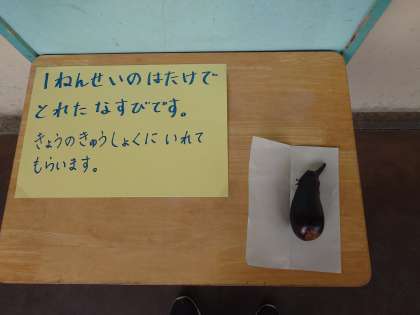 1ねんせいのはたけで
とれた なすびです。
きょうのきゅうしょくに いれて
もらいます。